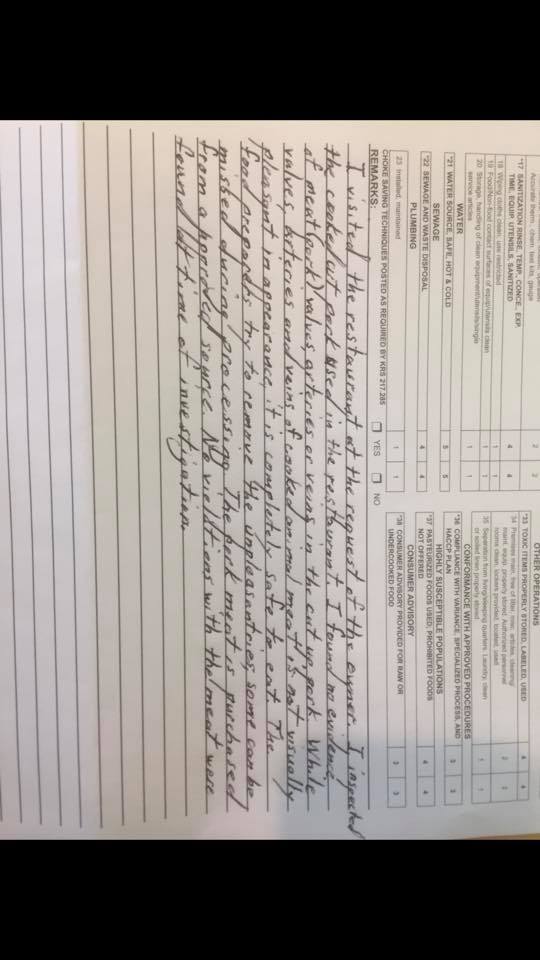 Accurate therm., chem. test kits, gauge 2 2
*17 SANITIZATION RINSE, TEMP. CONCE., EXP. TIME, EQUIP. UTENSILS, SANITIZED 4 4
18 Wiping cloths clean, use restricted 1 1
19 Food/Non-food contact surfaces of equip/utensils clean 1 1
20 Storage, handling of clean equipment/utensils/single service articles 1 1
WATER
*21 WATER SOURCE, SAFE, HOT & COLD 5 5
SEWAGE
*22 SEWAGE AND WASTE DISPOSAL 4 4
PLUMBING
23 Installed, maintained 1 1
OTHER OPERATIONS
*33 TOXIC ITEMS PROPERLY STORED, LABELED, USED 4 4
34 Premises main. free of litter, misc. articles, cleaning/
maint. equip. properly stored. Authorized personnel
rooms clean, lockers provided, located, used 2 2
35 Separation from living/sleeping quarters. Laundry, clean
or soiled linen properly stored 1 1
CONFORMANCE WITH APPROVED PROCEDURES
*36 COMPLIANCE WITH VARIANCE, SPECIALIZED PROCESS, AND
HACCP PLAN 3 3
HIGHLY SUSCEPTIBLE POPULATIONS
*37 PASTEURIZED FOODS USED; PROHIBITED FOODS
NOT OFFERED 4 4
CONSUMER ADVISORY
*38 CONSUMER ADVISORY PROVIDED FOR RAW OR
UNDERCOOKED FOOD 3 3
CHOKE SAVING TECHNIQUES POSTED AS REQUIRED BY KRS 217.285 YES NO
REMARKS:
I visited the restaurant at the request of the owner. I inspected
the cooked/cut pork used in the restaurant. I found no evidence
of meat (pork) valves, arteries or veins in the cut up pork. While
valves, arteries and veins of cooked animal meat is not visually
pleasant in appearance, it is completely safe to eat. The
food try to remove the unpleasantries, some can be
missed during processing. The pork meat is purchased
from a approved source. No violation with the meat were
found at time of investigation.